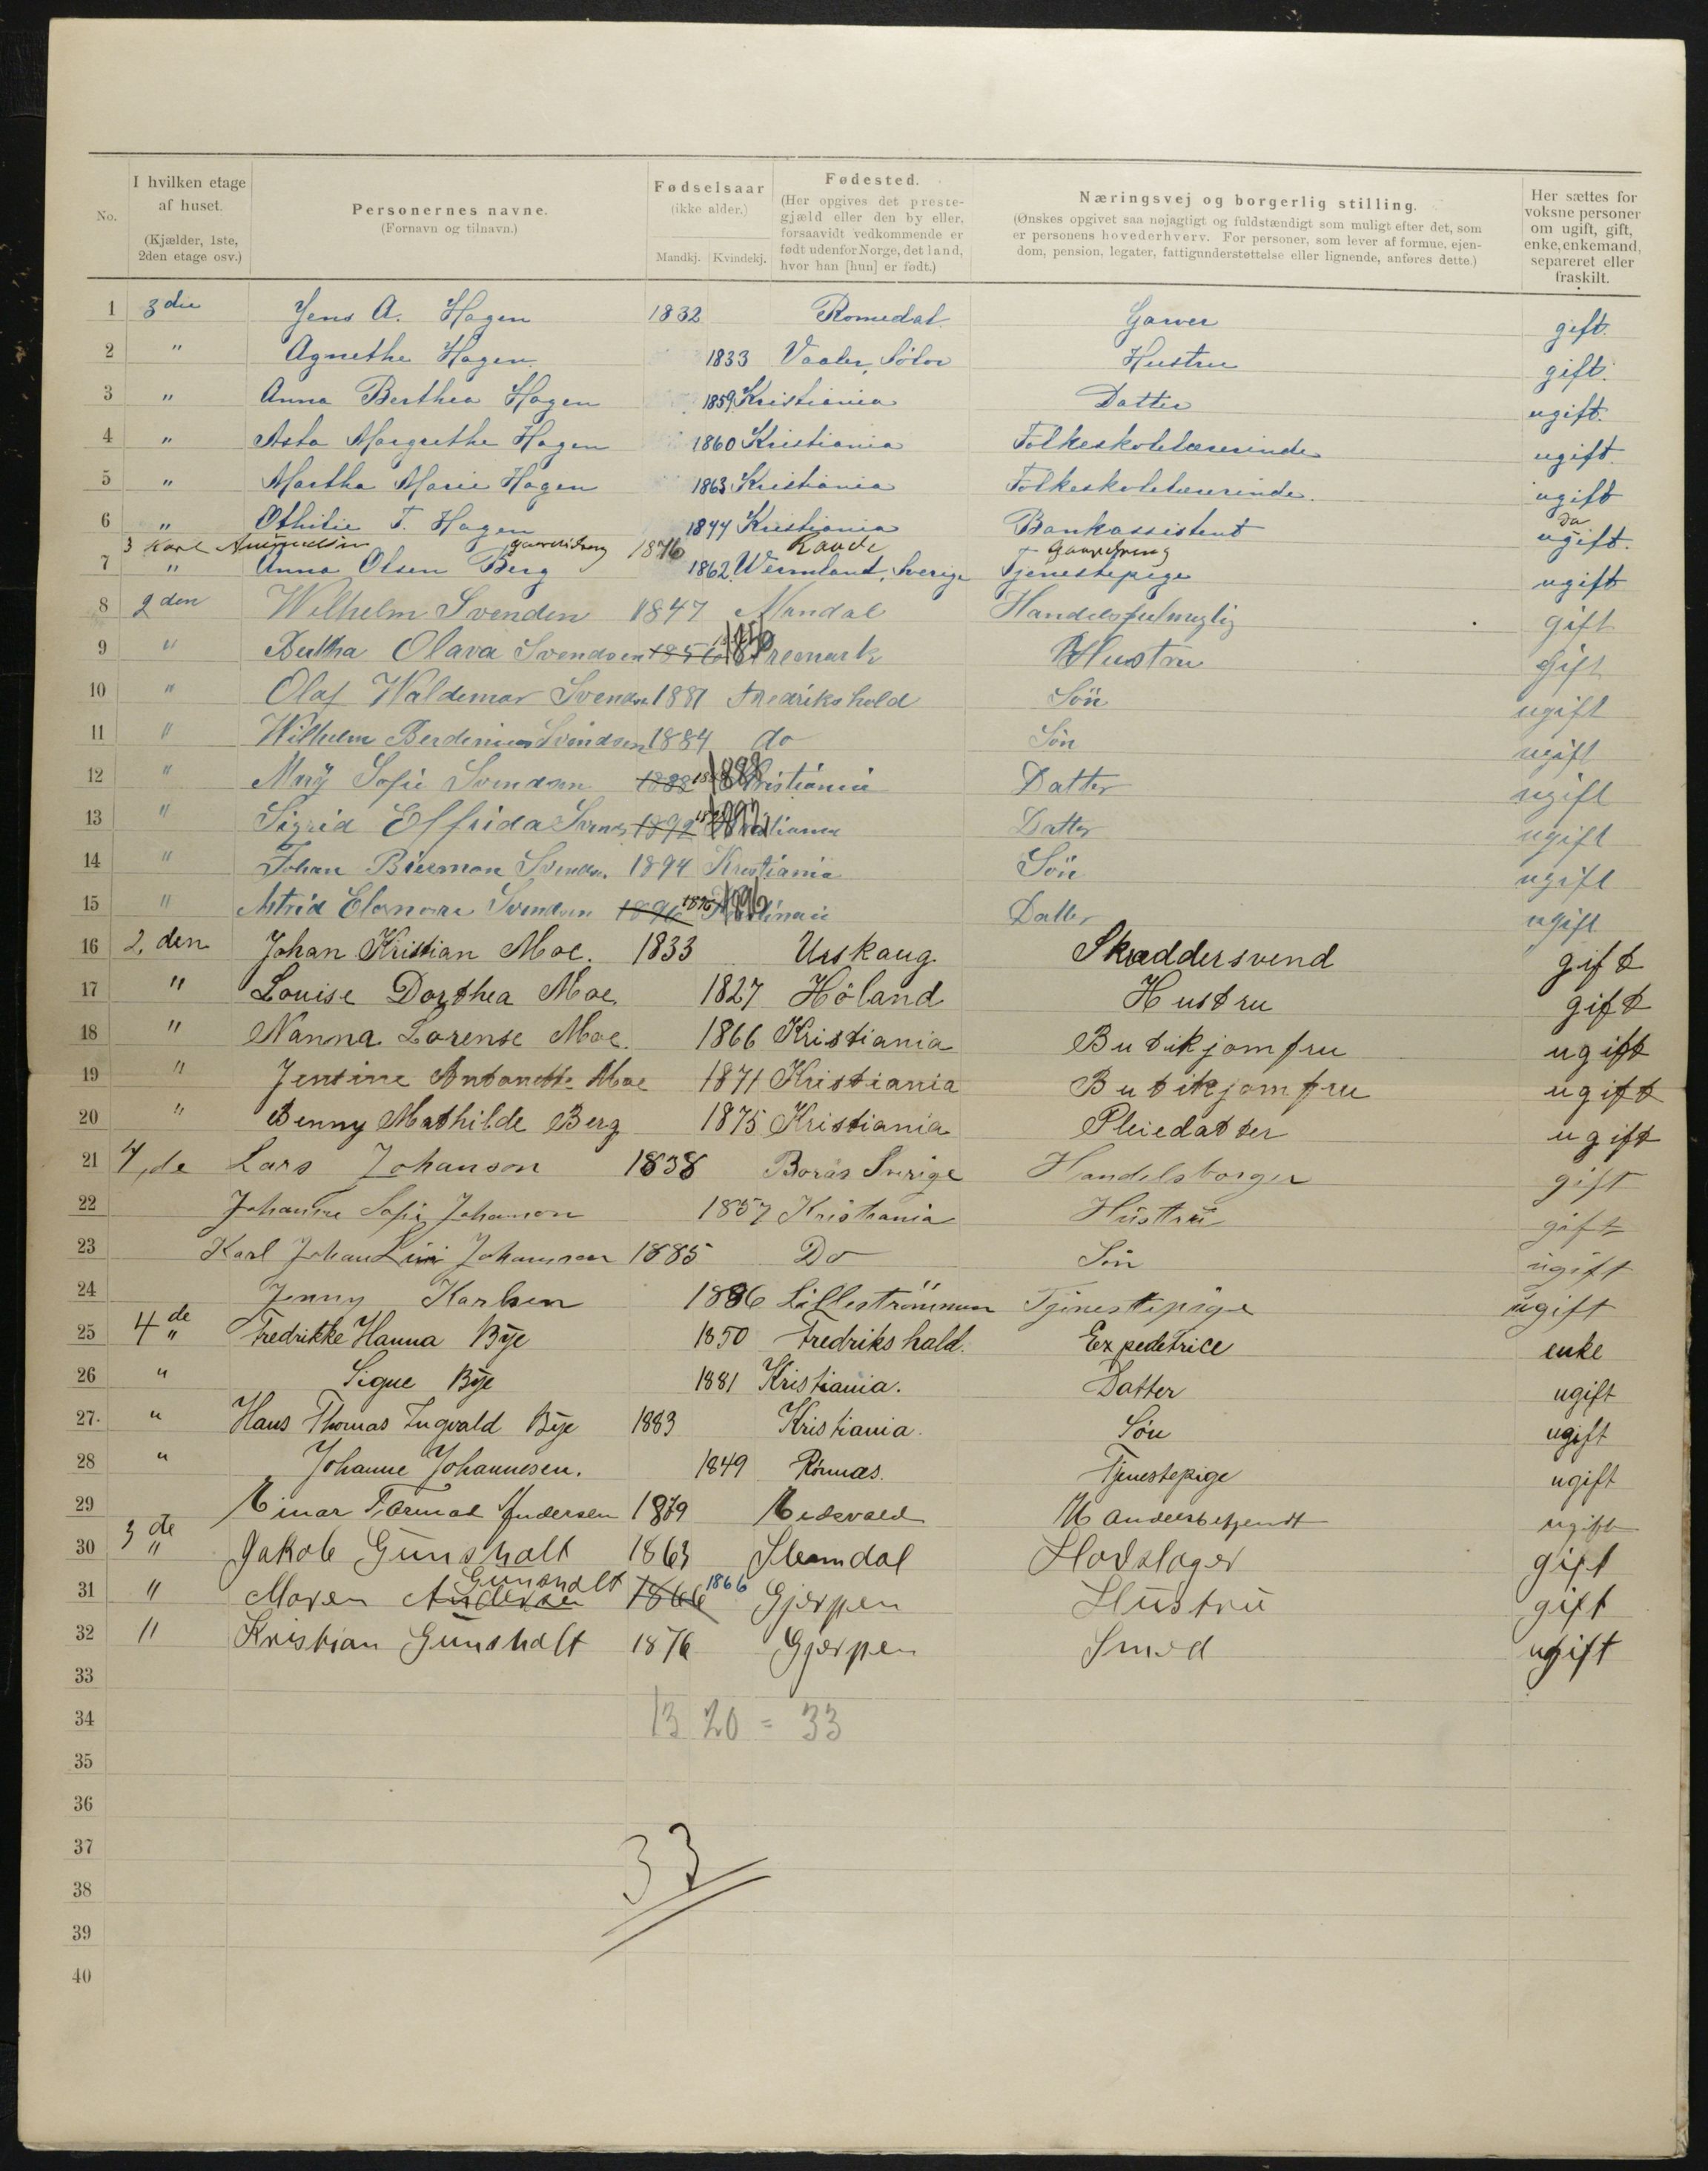 No. | I hvilken etage af huset. (Kjælder, 1ste, 2den etage osv.) | Personernes navne. (Fornavn og tilnavn.) | Fødselsaar (ikke alder.) Mandkj. Kvindekj. | Fødested. (Her opgives det prestegjæld eller den by eller, forsaavidt vedkommende er født udenfor Norge, det land, hvor han [hun] er født.) | Næringsvej og borgerlig stilling. (Ønskes opgivet saa nøjagtigt og fuldstændigt som muligt efter det, som er personens hovederhverv. For personer, som lever af formue, ejendom, pension, legater, fattigunderstøttelse eller lignende, anføres dette.) | Her sættes for voksne personer om ugift, gift, enke, enkemand, separeret eller fraskilt.
1 3die Jens A. Hagen 1832 Romedal Garver gift.
2 " Agnethe Hagen 1833 Vaaler, Solør Hustru gift.
3 " Anna Berthea Hagen 1859 Kristiania Datter ugift.
4 " Asta Margrethe Hagen 1860 Kristiania Folkeskolelærerinde ugift.
5 " Martha Marie Hagen 1863 Kristiania Folkeskolelærerinde. ugift
6 " Othilie T. Hagen 1844 Kristiania Bankassistent ugift.
3 Karl 1876 Raade Gaardsdreng Do
7 " Anna Olsen Berg 1862. Wermland, Sverige Tjenestepige ugift
8 2den Wilhelm Svendsen 1847 Mandal gift
9 " Olava Svendsen 1856 1856 Aremark Hustru gift
10 " Olaf Waldemar Svendsen 1881 Fredrikshold Sön ugift
11 " Wilhelm Svindsen 1884 do Sön ugift
12 " Mary Sofie Svendsen 1888 1888 Kristiania Datter ugift
13 " Sigrid Elfrida Svends 1892 1892 Kristiania Datter ugift
14 " Johan Svends. 1894 Kristiania Sön ugift
15 " Astrid Elonora Svendsen 1896 1896 Kristiania Datter ugift
16 2.den Johan Kristian Moe. 1833 Urskaug. Skræddersvend gift
17 " Louise Dorthea Moe. 1827 Höland Hustru gift
18 " Nanna Lorense Moe. 1866 Kristiania Butikjomfru ugift
19 " Jensine Antonette Moe 1871 Kristiania Butikjomfru ugift
20 " Benny Mathilde Berg 1875 Kristiania Pleiedatter ugift
21 4,de Lars Johanson 1838 Borås Sverige Handelsborger gift
22 Johanne Sofie Johanson 1857 Kristiania Hüstrü gift
23 Karl Johan Johannsen 1885 Do Sön ugift
24 Jenny Karlsen 1886 Lilleströmmen Tjenestepige ugift
25 4de " Fredrikke Hanna Bÿe 1850 Fredrikshald. Expeditrice enke
26 " Signe Bÿe 1881 Kristiania. Datter ugift
27. " Hans Thomas Ingvald Bÿe 1883 Kristiania. Sön ugift
28 " Johanne Johannesen. 1849 Tjenestepige ugift
29 Einar Andersen 1879 Eidsvold Handelsbetjendt ugift
30 3de " Jakob Gunsholt 1863 Slemdal gift
31 " Maren Andersen Gunsholt 1866 1866 Gjerpen Hüstrü gift
32 " Kristian Gunsholt 1876 Gjerpen Smed ugift
33
34 13 20 = 33
35
36
37
33
38
39
40